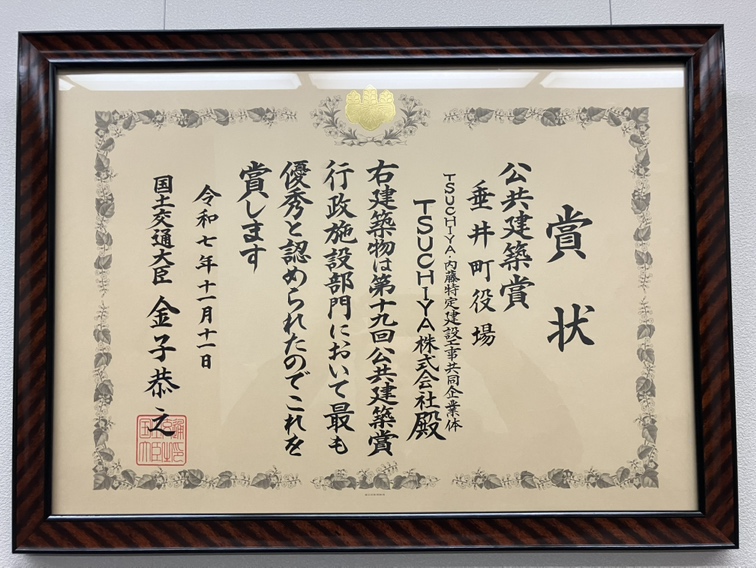 賞状
公共建築賞
垂井町役場
TSUCHIYA・内藤特定建設工事共同企業体
TSUCHIYA株式会社殿
右建築物は第十九回公共建築賞
行政施設部門において最も
優秀と認められたのでこれを
賞します
令和七年十一月十一日
国土交通大臣 金子恭之